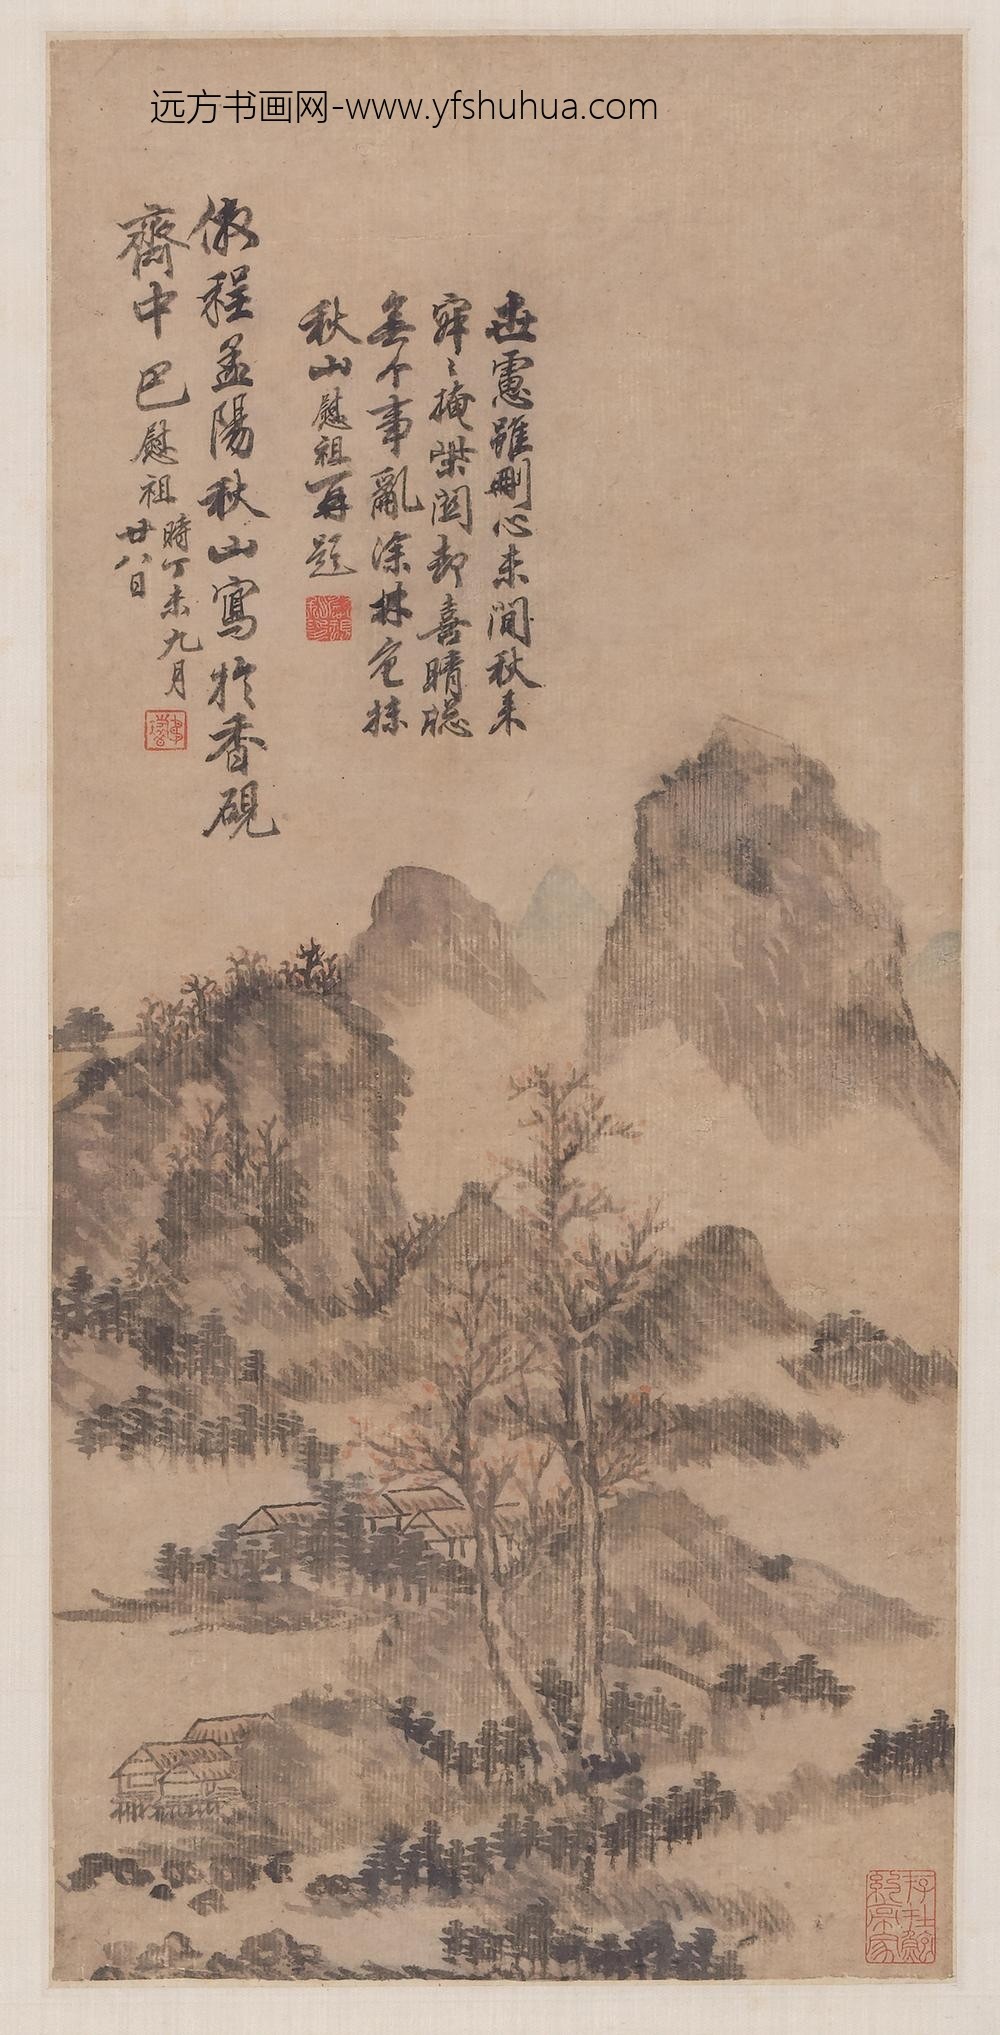 远方书画网-www.yfshuhua.com
世慮雖刪心未閒秋來
寂〻掩柴関却喜晴窓
無个事亂塗林色抹
秋山慰祖再题
倣程孟陽秋山寫於香硯
齋中巴慰祖時丁未九月
廿八日